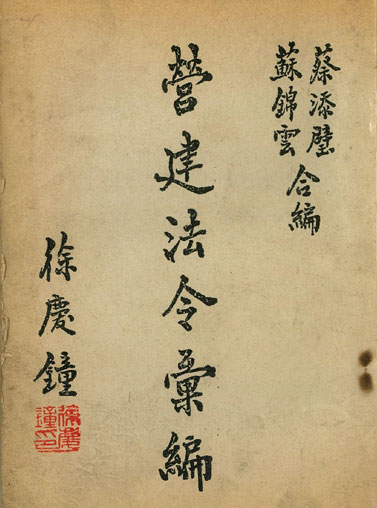 蔡添璧
蘇錦雲
合編
營建法令彙編
徐慶鐘
徐慶鐘印